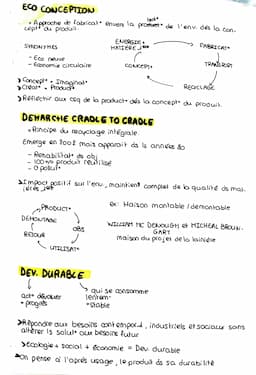 ECO CONCEPTION
• Approche de fabricat° envers la product° de l'env. dès la con-
cept° du produit.
SYNONYMES
- Eco neuve
- Economie circulaire
ENERGIE +
MATIERE
FABRICAT°
TRANSPORT
RECYCLAGE
CONCEPT°
> Concept° = Imaginat°
> Créat° = Product°
> Réfléchir aux csq de la product° dès la concept° du produit.
DEMARCHE CRADLE TO CRADLE
• Principe du recyclage intégrale.
Emerge en 2002 mais apparait ds ls années 80
- Rentabilitat° ds obj
- 100% produit réutilisé
- 0 pollut°
> Impact positif sur l'env, maintient complet de la qualité ds mat-
ières
PRODUCT°
DEMONTAGE
OBS
RETOUR
UTILISAT°
ex: Maison montable / démontable
WILLIAM MC DONOUGH et MICHEAL BROUN-
GART
maison du projet de la lainière
DEV. DURABLE
act° d'évoluer
+ progrès
qui se consomme
lentem-
+ stable
> Répondre aux besoins contempor, industriels et sociaux sans
altérer ls salut° aux besoins futur
> Ecologie + social + économie = Dev. durable
On pense à l'après usage, le produit ds sa durabilité